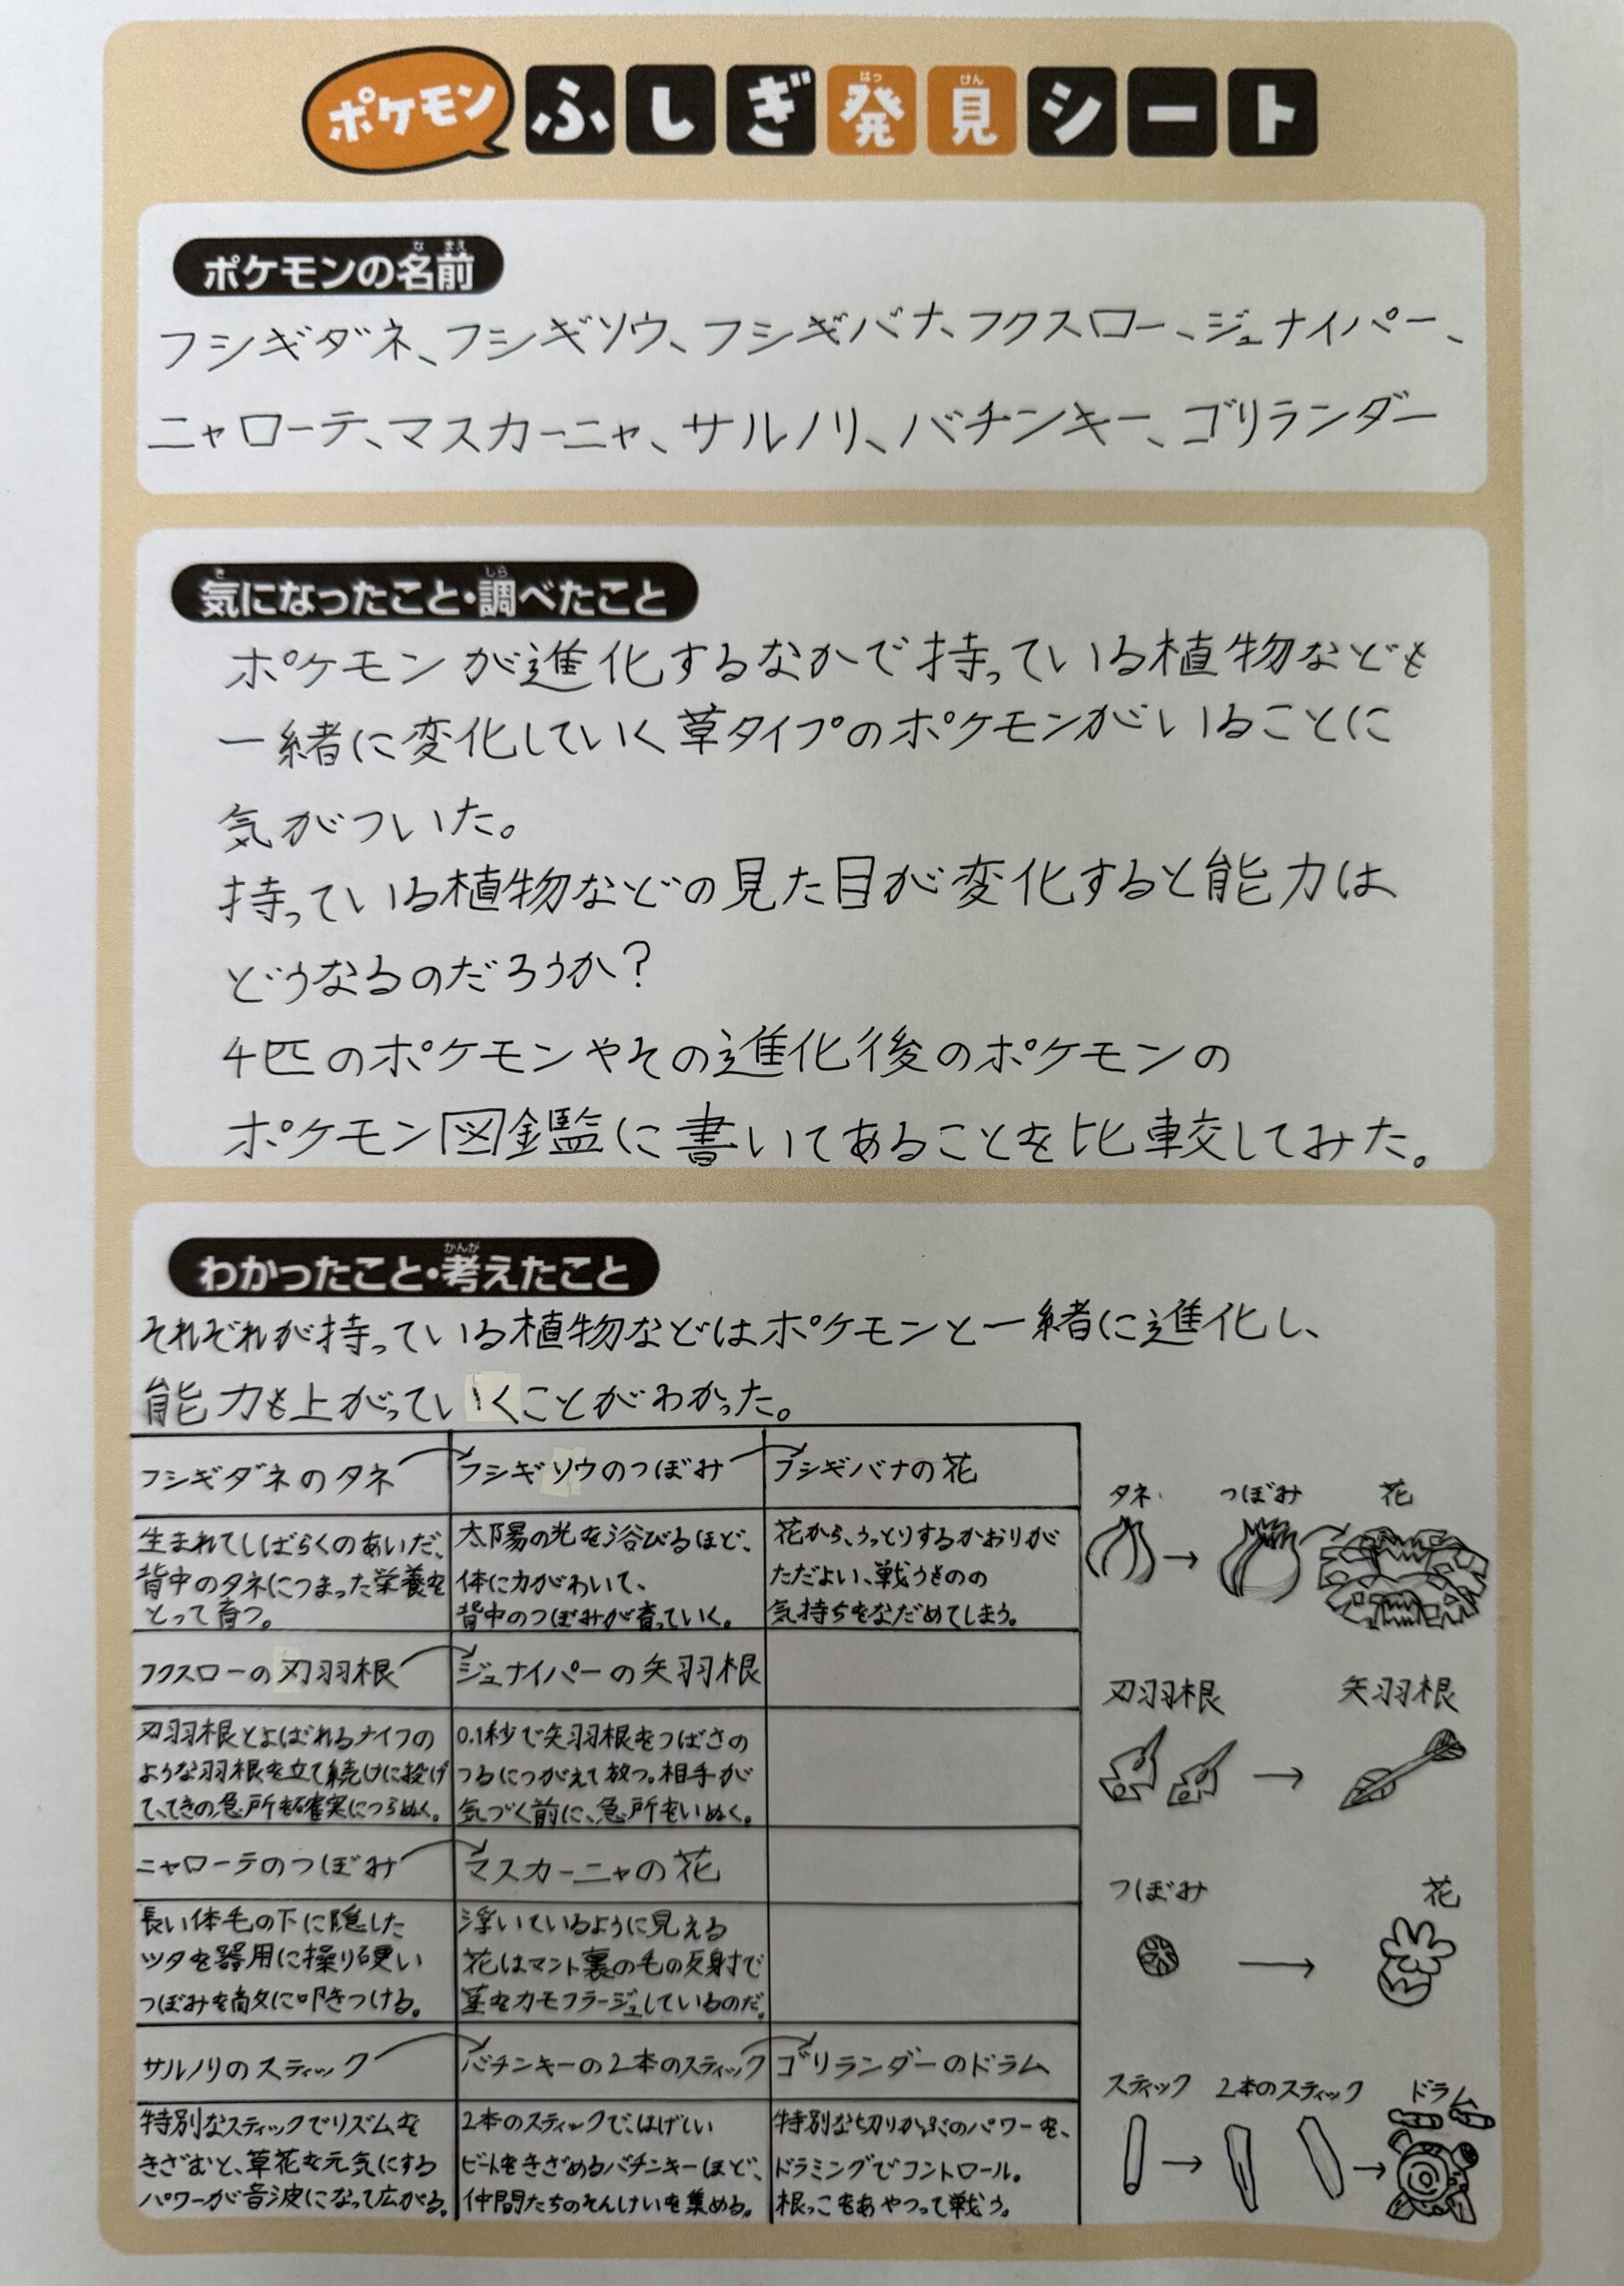 ポケモンふしぎ発見シート
ポケモンの名前
フシギダネ、フシギソウ、フシギバナ、フクスロー、ジュナイパー、
ニャローテ、マスカーニャ、サルノリ、バチンキー、ゴリランダー
気になったこと・調べたこと
ポケモンが進化するなかで持っている植物なども
一緒に変化していく草タイプのポケモンがいることに
気がついた。
持っている植物などの見た目が変化すると能力は
どうなるのだろうか？
4匹のポケモンやその進化後のポケモンの
ポケモン図鑑に書いてあることを比較してみた。
わかったこと・考えたこと
それぞれが持っている植物などはポケモンと一緒に進化し、
能力も上がっていくことがわかった。
フシギダネのタネ
フシギソウのつぼみ
フシギバナの花
生まれてしばらくのあいだ、
背中のタネにつまった栄養を
とって育つ。
太陽の光を浴びるほど、
体に力がわいて、
背中のつぼみが育っていく。
花から、うっとりするかおりが
ただよい、戦うものの
気持ちをなだめてしまう。
フクスローの刃羽根
ジュナイパーの矢羽根
刃羽根とよばれるナイフの
ような羽根を立て続けに投げ
て、てきの急所を確実につらぬく。
0.1秒で矢羽根をつばさの
つるにつがえて放つ。相手が
気づく前に、急所をいぬく。
ニャローテのつぼみ
マスカーニャの花
長い体毛の下に隠した
ツタを器用に操り硬い
つぼみを敵に叩きつける。
浮いているように見える
花はマント裏の毛の反射で
茎をカモフラージュしているのだ。
サルノリのスティック
バチンキーの2本のスティック
ゴリランダーのドラム
特別なスティックでリズムを
きざむと、草花を元気にする
パワーが音波になって広がる。
2本のスティックで、はげしい
ビートをきざめるバチンキーほど、
仲間たちのそんけいを集める。
特別な切りかぶのパワーを、
ドラミングでコントロール。
根っこをあやつって戦う。
タネ つぼみ 花
刃羽根 矢羽根
つぼみ 花
スティック 2本のスティック ドラム